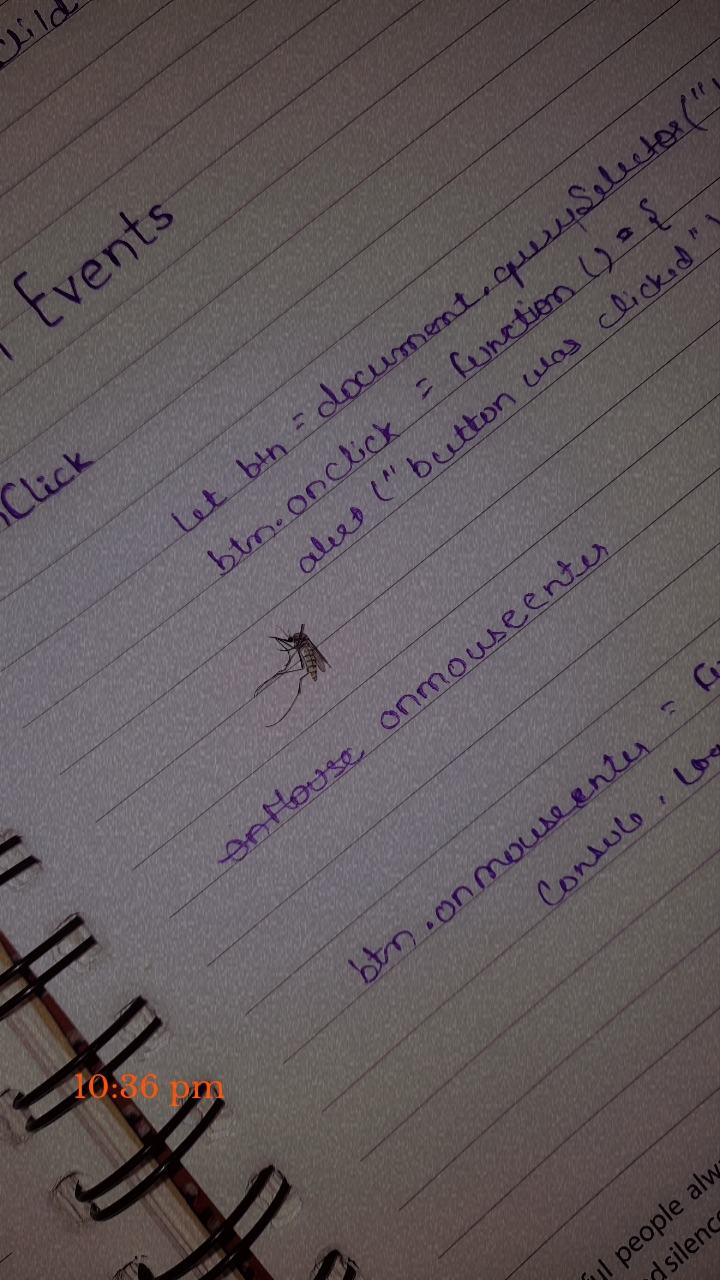 Child
Events
Click
let btn = document.querySelector("
btn.onclick = function () = {
alert ("button was clicked")
onMouse onmouseenter
btn.onmouseenter =
Console.log
10:36 pm
people
silence